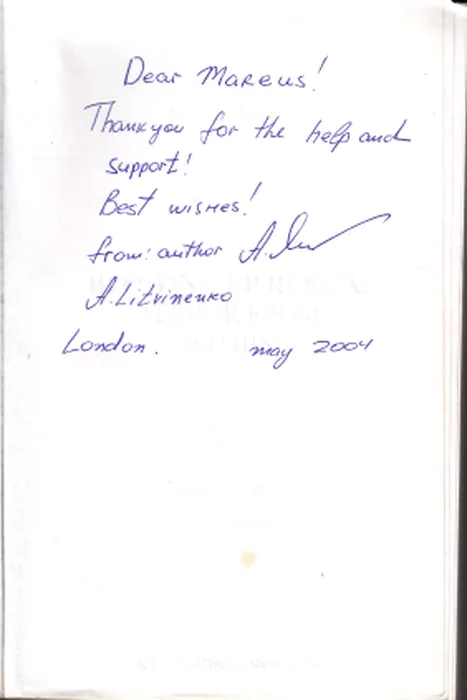 Dear Marcus!
Thank you for the help and
support!
Best wishes!
from: author A.
A. Litvinenko
London. may 2004